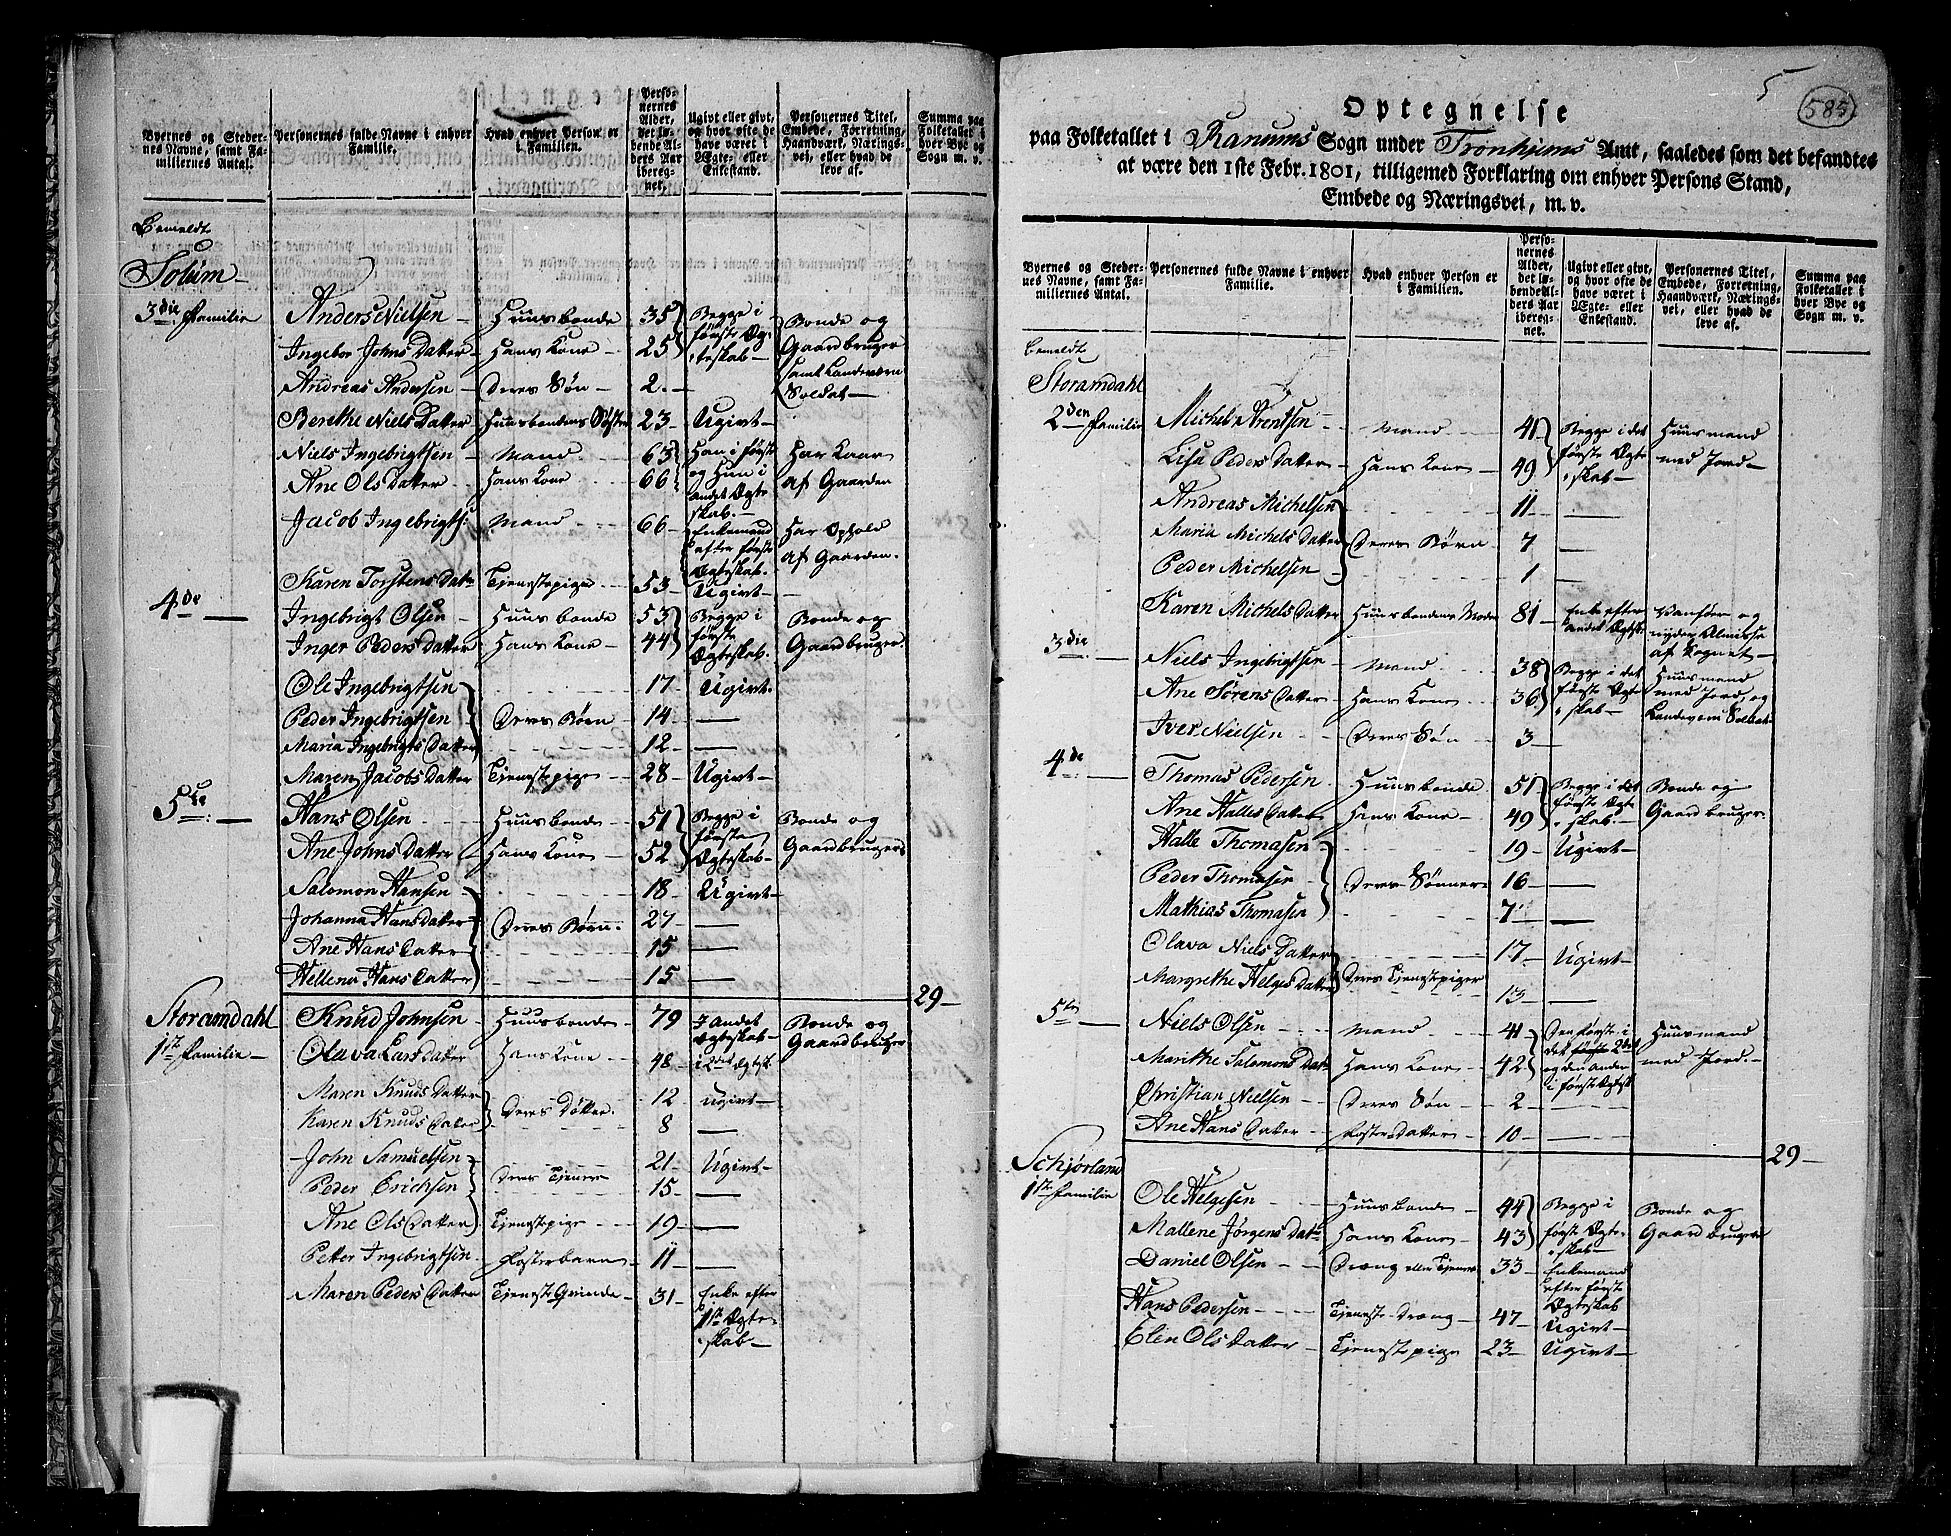 Byernes og Steder-
nes Navne, samt Fa-
miliernes Antal.
Personernes fulde Navne i enhver
Familie.
Hvad enhver Person er
i Familien.
Perso-
nernes
Alder,
det lø-
bende Al-
ders Aar
ibereg-
net.
Ugivt eller givt,
og hvor ofte de
have været i
Ægte- eller
Enkestand.
Personernes Titel,
Embede, Forretning,
Haandværk, Nærings-
vei, eller hvad de
leve af.
Summa paa
Folketallet i
hver Bye og
Sogn m. v.
Bemeldt
Solum
3die Familie Anders Nielsen Huusbonde 35 Begge i Bonde og
Ingebor Johns Datter Hans Kone 25 første Æg- Gaardbruger
teskab samt Landeværn
Andreas Andersen Deres Søn 2 Soldat
Berethe Niels Datter Huusbondens Søster 23 Ugivt
Niels Ingebrigtsen Mand 63 Han i første Har Kaar
Ane Ols Datter Hans Kone 66 og Hun i af Gaarden
andet Ægte
skab
Jacob Ingebrigts: Mand 66 Enkemand Har Ophold
efter første af Gaarden
Ægteskab
Karen Torstens Datr Tjenestepige 53 Ugivt
4de Ingebrigt Olsen Huusbonde 53 Begge i Bonde og
Inger Peders Datter Hans Kone 44 første Gaardbruger
Ægteskab
Ole Ingebrigtsen 17 Ugivt
Peder Ingebrigtsen Deres Børn 14
Maria Ingebrigts Datter 12
Maren Jacobs Datter Tjenestepige 28 Ugivt
5te Hans Olsen Huusbonde 51 Begge i Bonde og
Ane Johns Datter Hans Kone 52 første Gaardbruger
Ægteskab
Salomon Hansen 18 Ugivt
Johanna Hans datter Deres Børn 27
Ane Hans Datter 15
Hellena Hans Datter 15
29
Storamdahl Knud Johnsen Huusbonde 79 I andet Bonde og
1ste Familie Ægteskab Gaardbruger
Olava Lars datter Hans Kone 48 i 2det Ægtesk:
Maren Knuds Datter Deres Døtter 12 ugivt
Karen Knuds Datter 8
John Samuelsen Deres Tjenere 21 Ugivt
Peder Erichsen 15
Ane Ols Datter Tjenestepige 19
Petter Ingebrigtsen Fosterbarn 11
Maren Peders Datter Tjeneste Qvinde 31 Enke efter
1ste Ægte
skab
5
585
Optegnelse
paa Folketallet i Ranums Sogn under Tronhjems Amt, saaledes som det befandtes
at være den 1ste Febr. 1801, tilligemed Forklaring om enhver Persons Stand,
Embede og Næringsvei, m. v.
Byernes og Steder-
nes Navne, samt Fa-
miliernes Antal.
Personernes fulde Navne i enhver
Familie.
Hvad enhver Person er
i Familien.
Perso-
nernes
Alder,
det lø-
bende Al-
ders Aar
ibereg-
net.
Ugivt eller givt,
og hvor ofte de
have været i
Ægte- eller
Enkestand.
Personernes Titel,
Embede, Forretning,
Haandværk, Nærings-
vei, eller hvad de
leve af.
Summa paa
Folketallet i
hver Bye og
Sogn m. v.
Bemeldt
Storamdahl
2den Familie Michel Arentsen Mand 41 Begge i det Huusmand
Lisa Peders Datter Hans Kone 49 første Ægte med Jord
skab
Andreas Michelsen 11
Maria Michels Datter Deres Børn 7
Peder Michelsen 1
Karen Michels Datter Huusbondens Moder 81 Enke efter Vanfør og
andet Ægtesk: nyder Almisse
af Sognet
3die Niels Ingebrigtsen Mand 38 Begge i det Huusmand
Ane Sørens Datter Hans Kone 36 første Ægte med Jord, og
skab Landeværn Soldat
Iver Nielsen Deres Søn 3
4de Thomas Pedersen Huusbonde 51 Begge i det Bonde og
Ane Halles Datter Hans Kone 49 første Ægte Gaardbruger
skab
Halle Thomasen 19 Ugivt
Peder Thomasen Deres Sønner 16
Mathias Thomasen 7
Olava Niels Datter 17 Ugivt
Margrethe Helges Datter Deres Tjenestepiger 13
5te Niels Olsen Mand 41 Den første i Huusmand
Marithe Salomons Datr Hans Kone 42 det første 2det med Jord
og den anden
i første Ægtesk
Christian Nielsen Deres Søn 2
Ane Hans Datter Foster Datter 10
29
Schjørland
1ste Familie Ole Helgesen Huusbonde 44 Begge i Bonde og
Mallene Jørgens Datr Hans Kone 43 første Ægte- Gaardbruger
skab
Daniel Olsen Dreng eller Tjener 33 Enkemand
efter første
Ægteskab
Hans Pedersen Tjeneste Dreng 47 Ugivt
Elen Ols Datter Tjenestepige 23 Ugivt